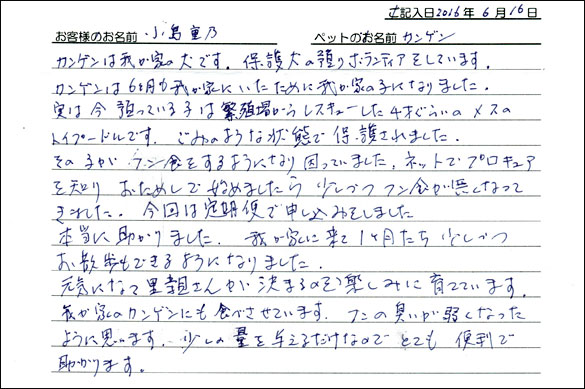 ご記入日2016年6月16日
お客様のお名前 小島里乃 ペットのお名前 カンゲン
カンゲンは我が家の犬です。保護犬の預りボランティアをしています。
カンゲンは6ヶ月も我が家にいたために我が家の子になりました。
実は今預っている子は繁殖場からレスキューした4才ぐらいのメスの
トイプードルです。ごみのような状態で保護されました。
その子がフン食をするようになり困っていました。ネットでプロキュア
を知り おためしで始めましたら 少しづつフン食が無くなって
きました。今回は定期便で申し込みをしました
本当に助かりました。我が家に来て1ヶ月たち少しづつ
お散歩もできるようになりました。
元気になって里親さんが決まるのを楽しみに育てています。
我が家のカンゲンにも食べさせています。フンの臭いが弱くなった
ように思います。少しの量を与えるだけなのでとても便利で
助かります。